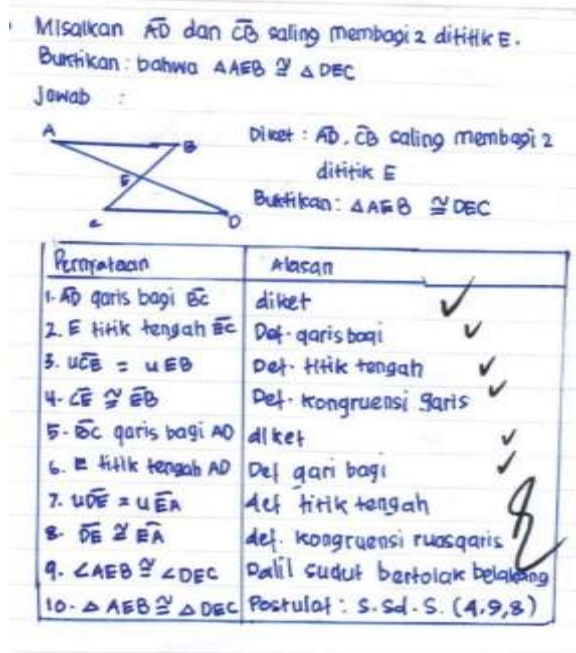 Misalkan AD dan CB saling membagi 2 dititik E.
Buktikan : bahwa △AEB ≅ △DEC
Jawab :
A
B
E
C
D
Diket : AD, CB saling membagi 2
dititik E
Buktikan : △AEB ≅ DEC
Pernyataan Alasan
1. AD garis bagi BC diket
2. E titik tengah BC Def. garis bagi
3. uCE = uEB Def. titik tengah
4. CE ≅ EB Def. Kongruensi garis
5. BC garis bagi AD diket
6. E titik tengah AD Def gari bagi
7. uDE = uEA def titik tengah
8. DE ≅ EA def. kongruensi ruasgaris
9. ∠AEB ≅ ∠DEC Dalil sudut bertolak belakang
10. △AEB ≅ △DEC Postulat : S.Sd.S. (4,9,8)